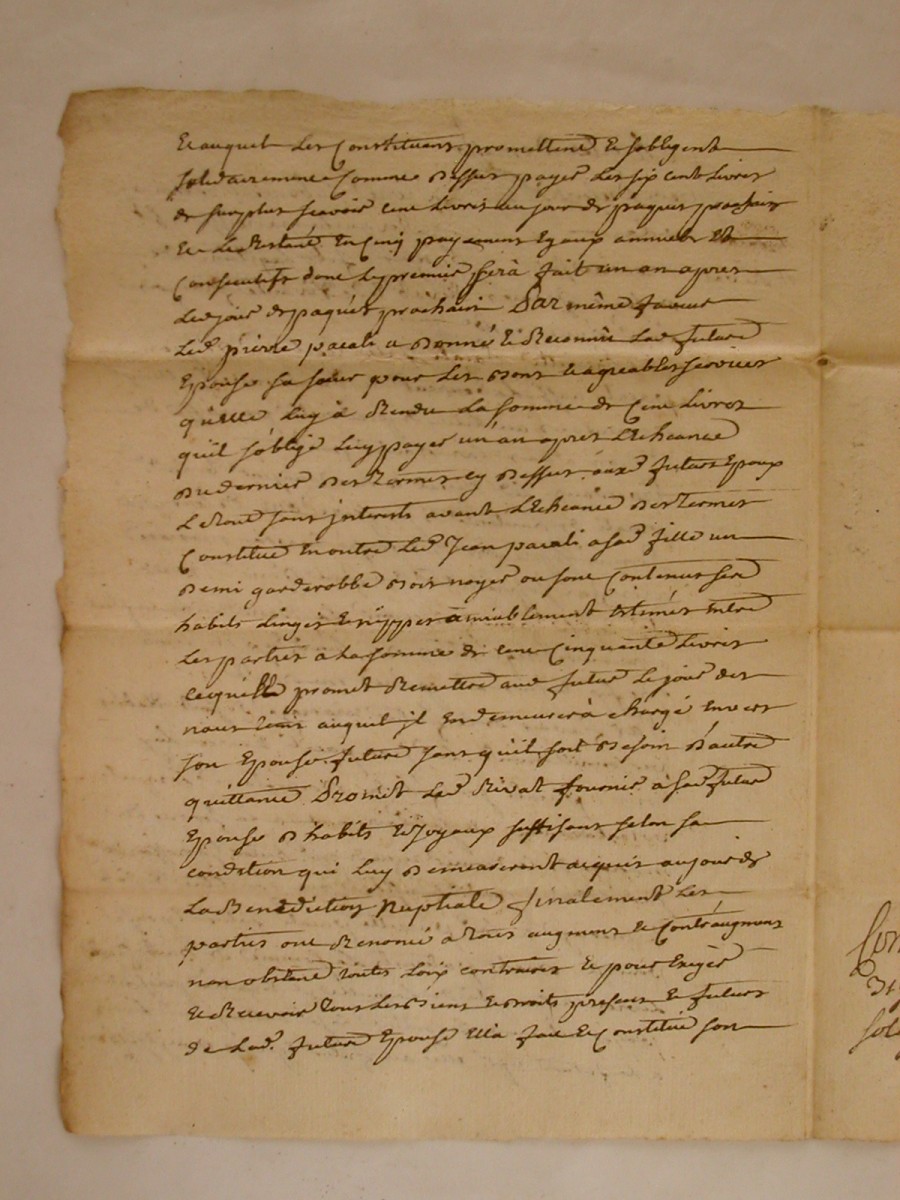 Et auquel Les Constituans promettent & sobligent
solidairement Comme dessus payer Les six cent Livres
de surplus scavoir cent Livres au jour de paques prochain
Et Le Restant En Cinq payement Egaux annuels Et
Consecutifs dont Le premier sera fait un an apres
Led jour de paques prochain Par même faveur
Led pierre pacali a donné & Reconnu Lad future
Epouse sa soeur pour Les bons & agreables services
quelle Luy à Rendu La somme de Cent Livres
quil soblige Luy payer un an apres LEcheance
du dernier des termes cy dessus auxd futurs Epoux
Le tout sans jnterests avant LEcheance des termes
Constitue En outre Led Jean pacali a sad fille un
demi garderobbe bois noyer ou sont Contenus ses
habits Linges & nippes amiablement Estimés Entre
Les parties à La somme de cent Cinquante Livres
Ce quelle promet Remettre aud futur Le jour des
auquel jl En demeurera chargé Envers
son Epouse future sans quil soit besoin dautre
quittance Promet Led Rivat fournir à sad future
Epouse dhabits & Joyaux suffisans selon sa
condition qui Luy demeureront acquis au jour de
La Benediction Nuptiale finalement Les
parties ont Renoncé a tous augment & Contraugment
non obstant toutes Loix contraires & pour Exiger
& Recevoir tous Les Biens & droits presens & futurs
de Lad. future Epouse Ella fait & Constitué son